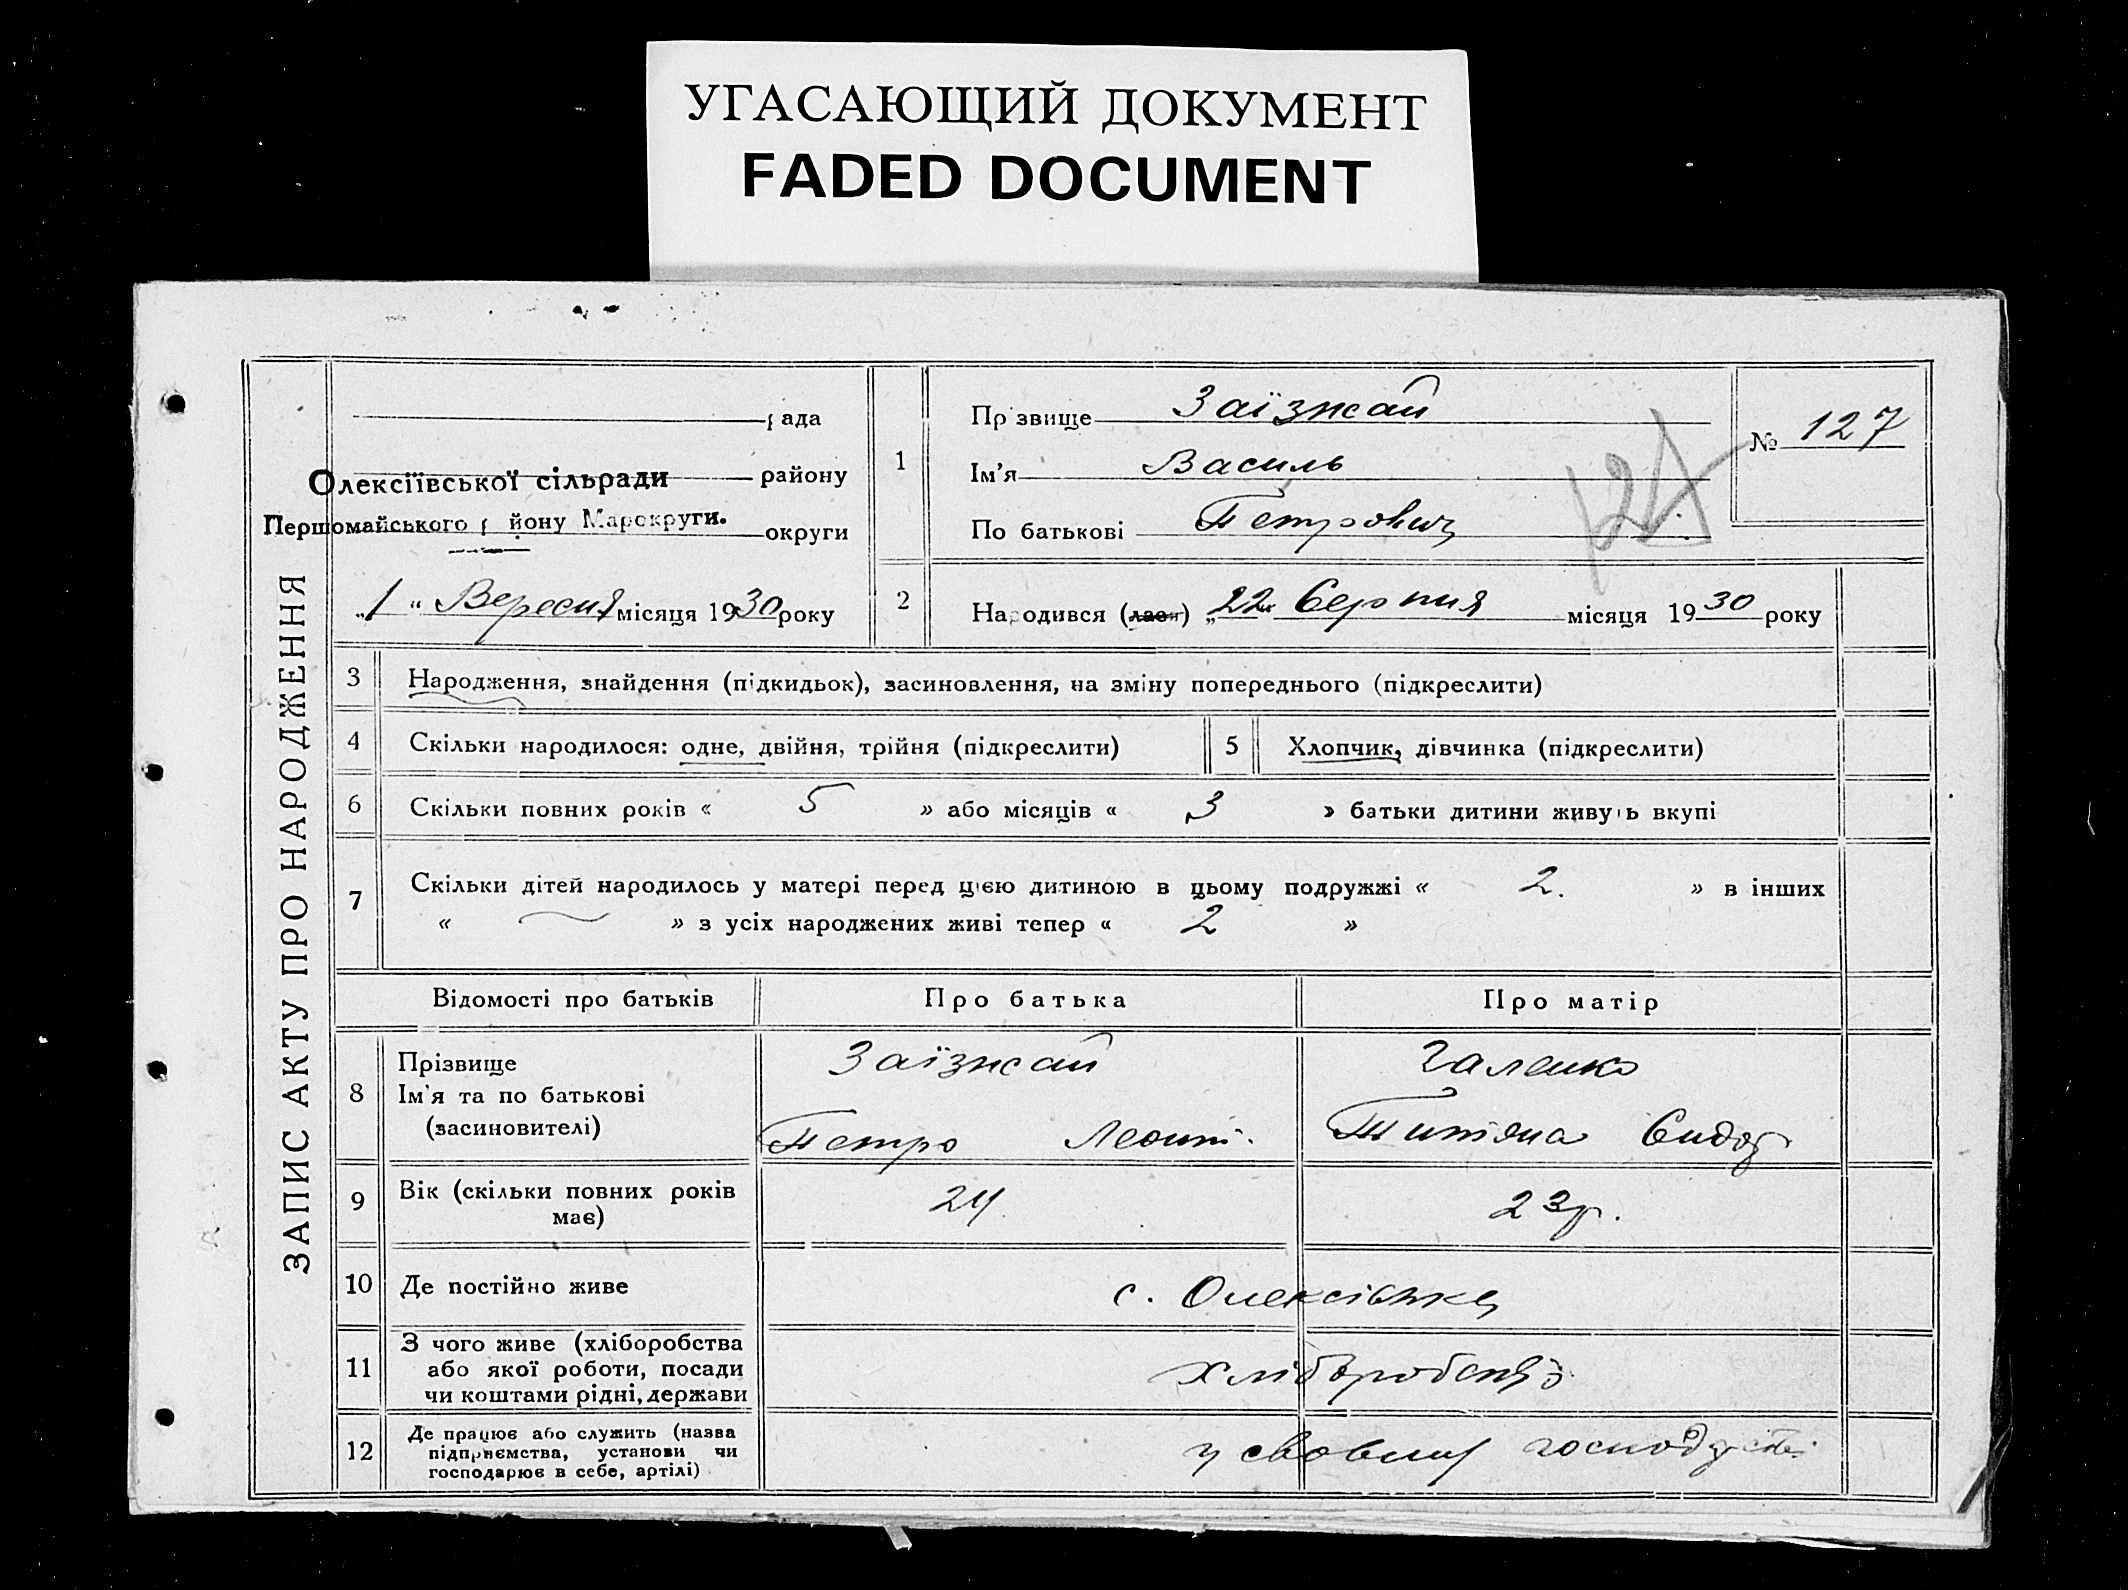 УГАСАЮЩИЙ ДОКУМЕНТ
FADED DOCUMENT
ЗАПИС АКТУ ПРО НАРОДЖЕННЯ
рада
Олексіївської сільради району
Першомайського р йону Маров'круги. округи
„1“ Вересня місяця 1930 року
1
Пр звище Заїзжай
Ім'я Василь
По батькові Петрович
№ 127
2
Народився (лася) „22 Серпня місяця 1930 року
3 Народження, знайдення (підкидьок), засиновлення, на зміну попереднього (підкреслити)
4 Скільки народилося: одне, двійня, трійня (підкреслити)
5 Хлопчик, дівчинка (підкреслити)
6 Скільки повних років « 5 » або місяців « 3 » батьки дитини живуть вкупі
7 Скільки дітей народилось у матері перед цією дитиною в цьому подружжі « 2. » в інших
« — » з усіх народжених живі тепер « 2 »
Відомості про батьків Про батька Про матір
8 Прізвище Заїзжай Галенко
Ім'я та по батькові
(засиновителі) Петро Леонт. Титяна Сидор
9 Вік (скільки повних років має) 24 23р.
10 Де постійно живе с. Олексіівка
11 З чого живе (хліборобства
або якої роботи, посади
чи коштами рідні, держави хліборобство
12 Де працює або служить (назва
підприємства, установи чи
господарює в себе, артілі) у своєму господарстві